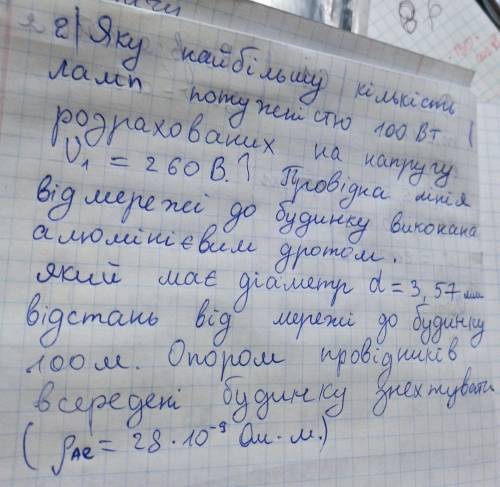 2) Яку найбільшу кількість
ламп потужністю 100 Вт (
розрахованих на напругу
U₁ = 260 В.) Провідна лінія
від мережі до будинку виконана
алюмінієвим дротом.
який має діаметр d = 3,57 мм
відстань від мережі до будинку
100 м. Опором провідників
всередені будинку знехтувати
(ρAl = 28 · 10⁻⁹ Ом · м.)